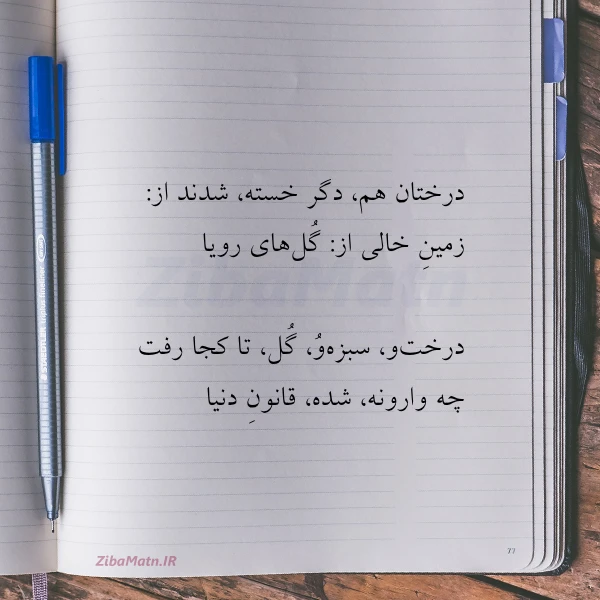 درختان هم، دگر خسته، شدند از:
زمینِ خالی از: گُل‌های رویا
ZibaMatn
درخت‌و، سبزه‌وُ، گُل، تا کجا رفت
چه وارونه، شده، قانونِ دنیا
77
ZibaMatn.IR